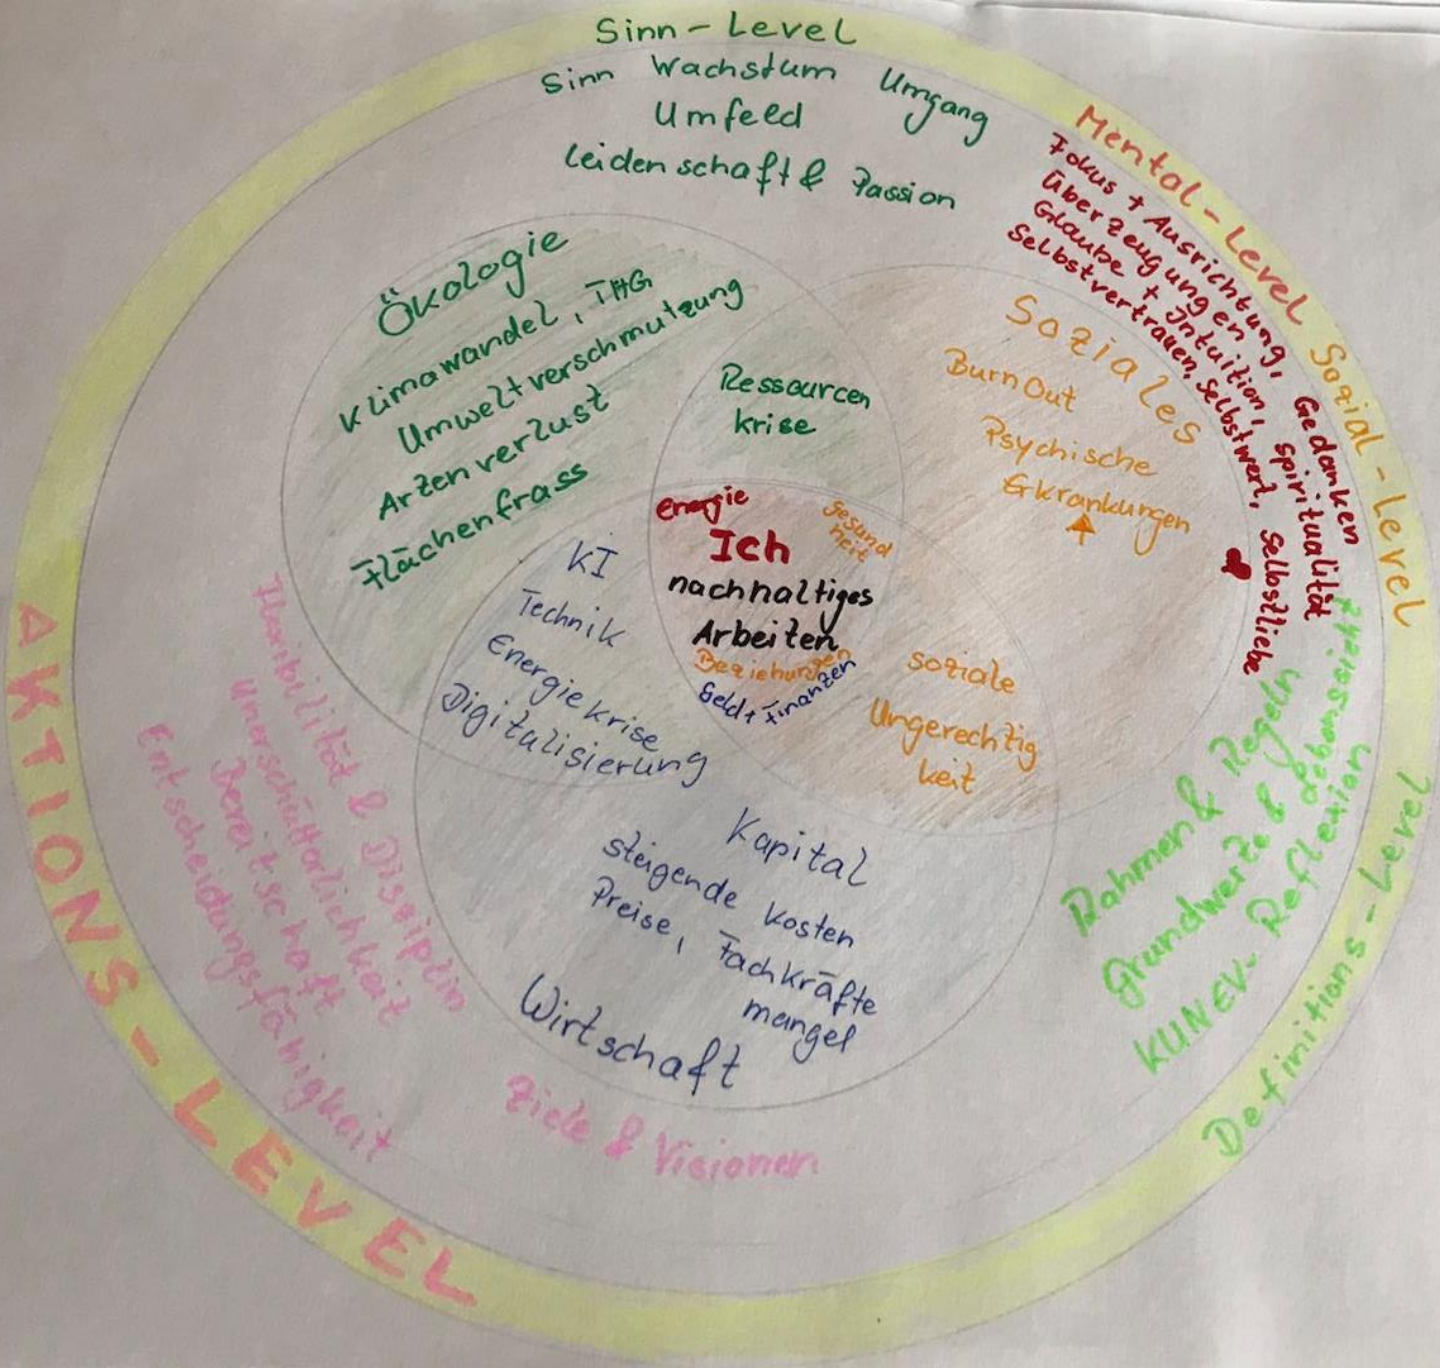 Sinn-Level
Sinn Wachstum Umgang
Umfeld
Leidenschaft & Passion
Mental-Level
Fokus + Ausrichtung, Gedanken
Überzeugungen, Spiritualität
Glaube + Intuition,
Selbstvertrauen, Selbstwert, Selbstliebe
Sozial-Level
Ökologie
Klimawandel, THG
Umweltverschmutzung
Artenverlust
Flächenfrass
Ressourcen
krise
Soziales
BurnOut
Psychische
Erkrankungen
energie
Gesund
heit
Ich
nachhaltiges
Arbeiten
Beziehungen
Geld + Finanzen
KI
Technik
Energiekrise
Digitalisierung
soziale
Ungerechtig
keit
Kapital
steigende Kosten
Preise, Fachkräfte
mangel
Wirtschaft
Rahmen & Regeln
Grundwerte &
KUNEV- Reflexion
Definitions-Level
AKTIONS-LEVEL
Flexibilität & Disziplin
Unerschütterlichkeit
Bereitschaft
Entscheidungsfähigkeit
Ziele & Visionen